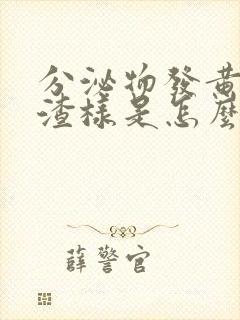 分泌物發黃
渣樣是怎麼
薛警官